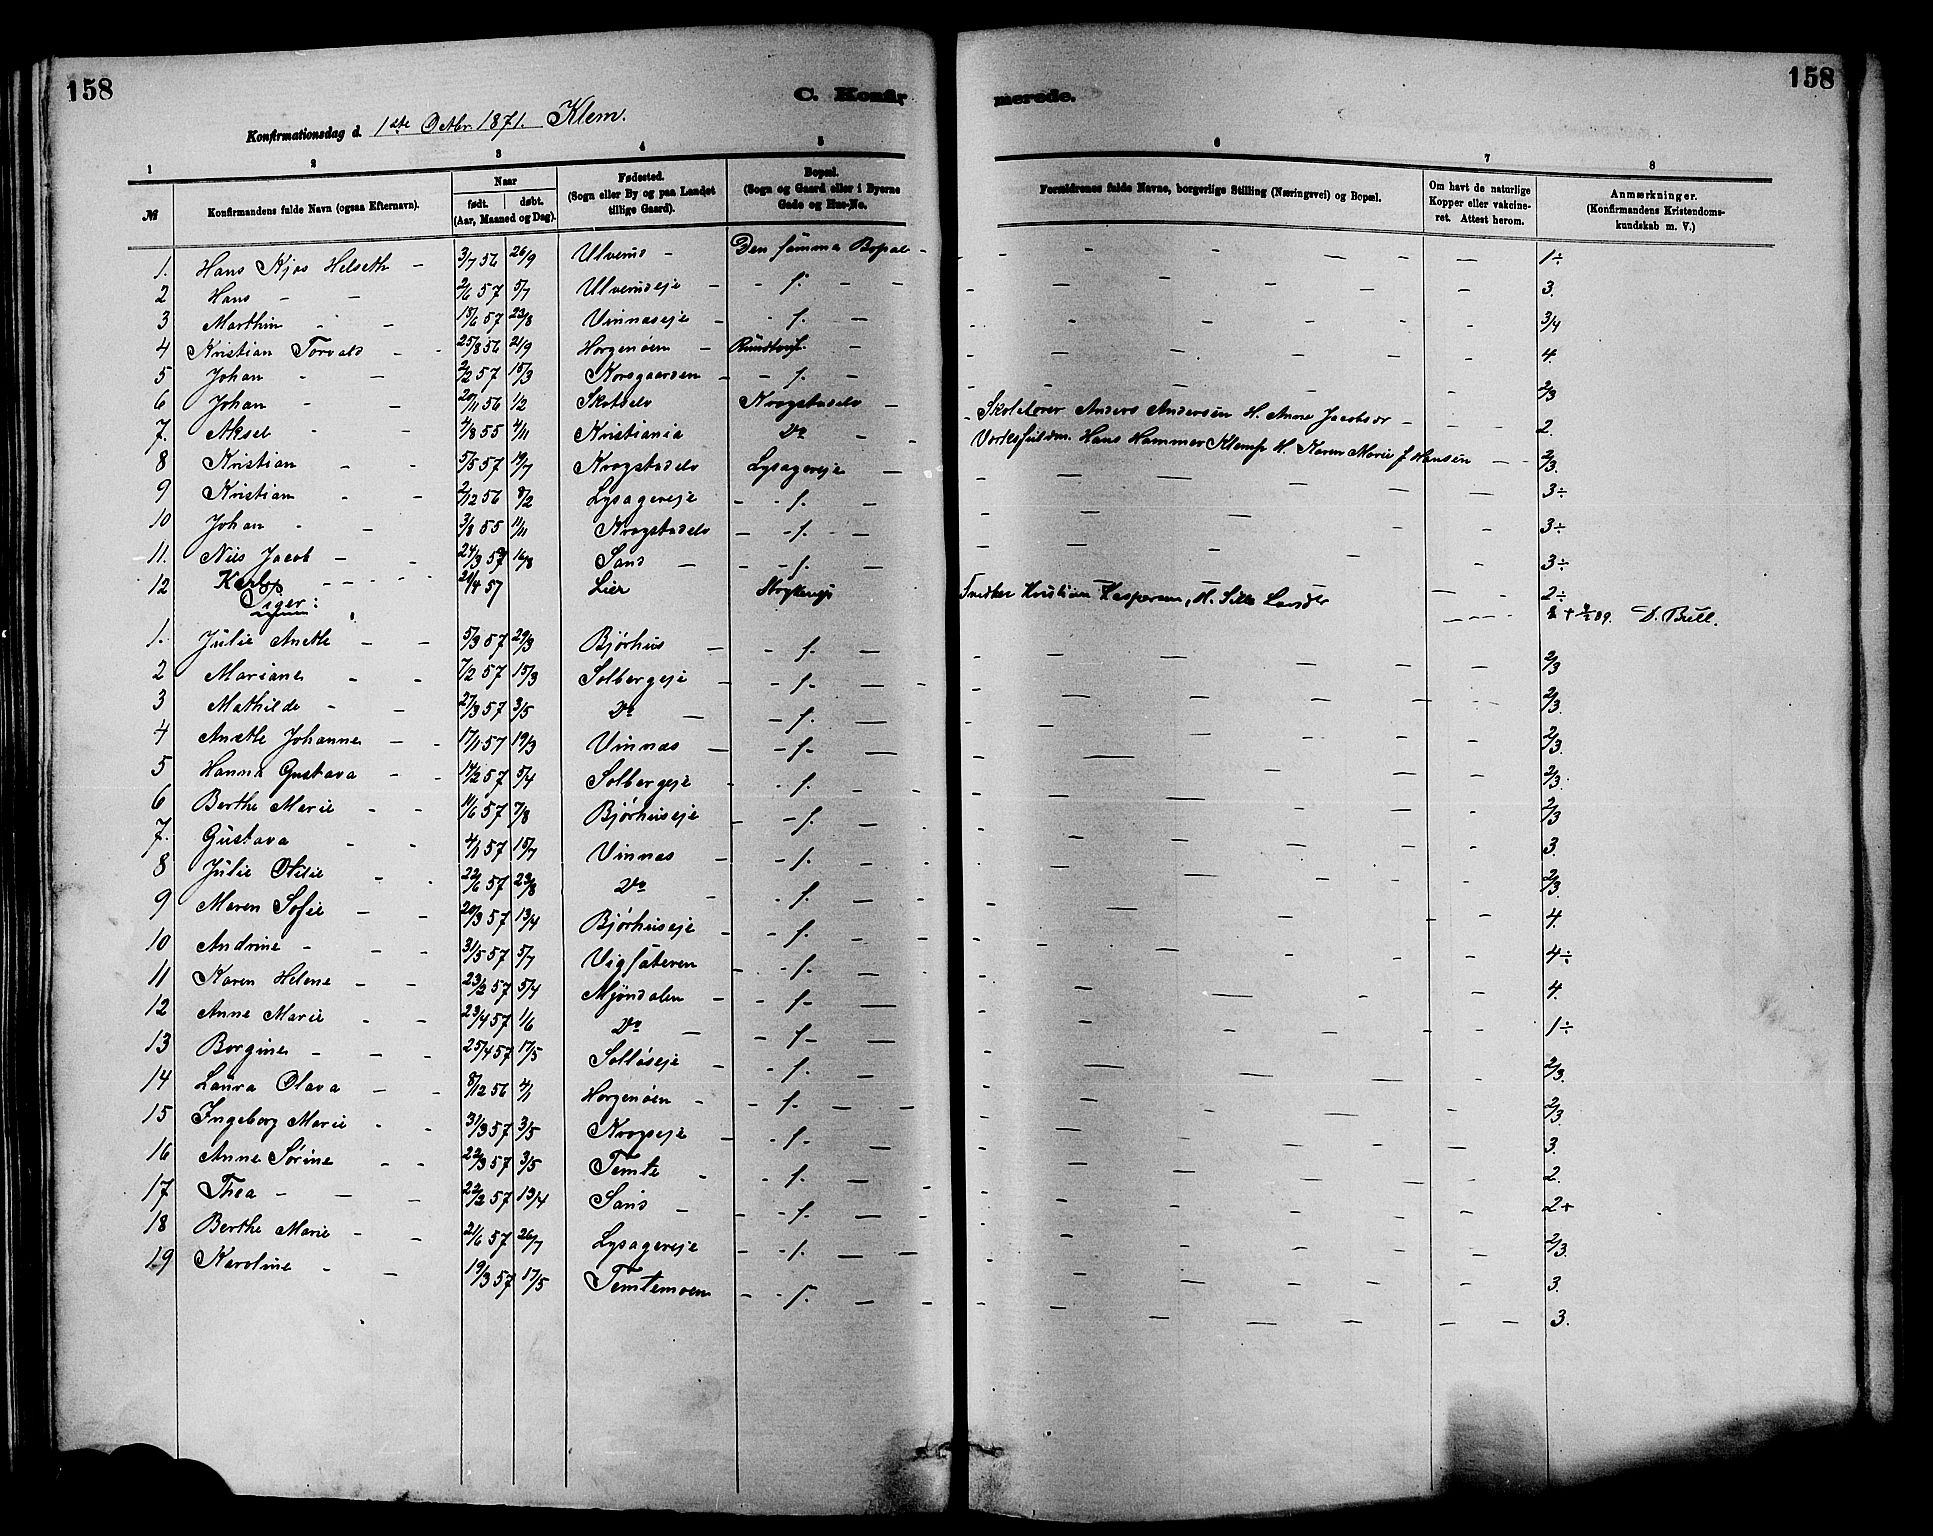 158
C. Konfir
merede.
158
Konfirmationsdag d. 1ste Octbr. 1871. Klem.
1 2 3 4 5 6 7 8
№ Konfirmandens fulde Navn (ogsaa Efternavn). Naar født. døbt. (Aar, Maaned og Dag). Fødested. (Sogn eller By og paa Landet tillige Gaard). Bopæl. (Sogn og Gaard eller i Byerne Gade og Hus-No. Forældrenes fulde Navne, borgerlige Stilling (Næringsvei) og Bopæl. Om havt de naturlige Kopper eller vakcineret. Attest herom. Anmærkninger. (Konfirmandens Kristendomskundskab m. V.)
1. Hans Kjos Helseth - 3/7 56 26/9 Ulverud - Den samma Bopæl - 1÷
2 Hans - - 2/6 57 5/7 Ulverudeje - - s. - - 3.
3 Marthin - - 18/6 57 23/8 Vinnaseje - - s. - 3/4
4 Kristian Torvald - - 25/8 56 21/9 Horgenøen - - 4.
5 Johan - - 2/2 57 15/3 Korsgaarden - - s. - 2/3
6 Johan - - 20/11 56 1/2 Skotselv Krogstadelv - Skolelærer Anders Andersen H. Anne Jacobsdr - - - 2.
7. Aksel - - 4/8 55 4/11 Kristiania Do - - Verksfuldm. Hans Hammer Klemp H. Karen Marie f Hansen - - 2/3.
8 Kristian - - 5/5 57 19/7 Krogstadelv Lysagereje - 3÷
9 Kristian - - 2/12 56 8/2 Lysagereje - - s. - 3÷
10 Johan - - 3/8 55 11/11 Krogstadelv - - s. - - 3÷
11. Nils Jacob - - 24/3 57 16/8 Sand - - - s. - 2÷
12 Karl - - - - 29/4 57 Lier Snedker Kristian Kaspersen, H.
D. Bull.
1. Julie Anette - - 5/3 57 29/3 Bjørhus - - s. - 2/3
2 Mariane - - 7/2 57 15/3 Solbergeje - - s. - - 2/3.
3 Mathilde - - 27/3 57 3/5 Do - - s. - 2/3.
4 Anette Johanne - - 17/1 57 19/3 Vinnas - - s. - 2/3.
5 Hanna Gustava - - 14/2 57 5/4 Solbergeje - - s. - - 2/3
6 Berthe Marie - - 11/6 57 7/8 Bjørhuseje - - s. - 3.
7. Gustava - - 4/1 57 15/7 Vinnas - - s. - - 2/3.
8 Julie Otilie - - 22/6 57 23/8 Do - - s. - - 4.
9 Maren Sofie - - 20/3 57 13/4 Bjørhuseje - - s. - - 4÷
10 Andrine - - - 31/5 57 5/7 Vigsæteren - - s. - - 4.
11 Karen Helene - - 23/2 57 5/4 Mjøndalen - - s. - 1÷
12 Anne Marie - - 23/4 57 1/6 Do - - s. - 2/3.
13 Borgine - - - 25/4 57 17/5 Solløseje - - s. - - 2/3.
14 Laura Olava - - 8/12 56 4/1 Horgenøen - - s. - - 3.
15 Ingeborg Marie - - 31/3 57 3/5 Krogseje - - s. - - 2.
16 Anne Sørine - - 22/3 57 3/5 Temte - - s. - - 2+
17 Thea - - - 22/2 57 13/4 Sand - - - s. - - 2/3.
18 Berthe Marie - - 21/6 57 26/7 Lysagereje - - s. - - 3.
19 Karoline - - 19/3 57 17/5 Temtemoen - - s. - - 3.